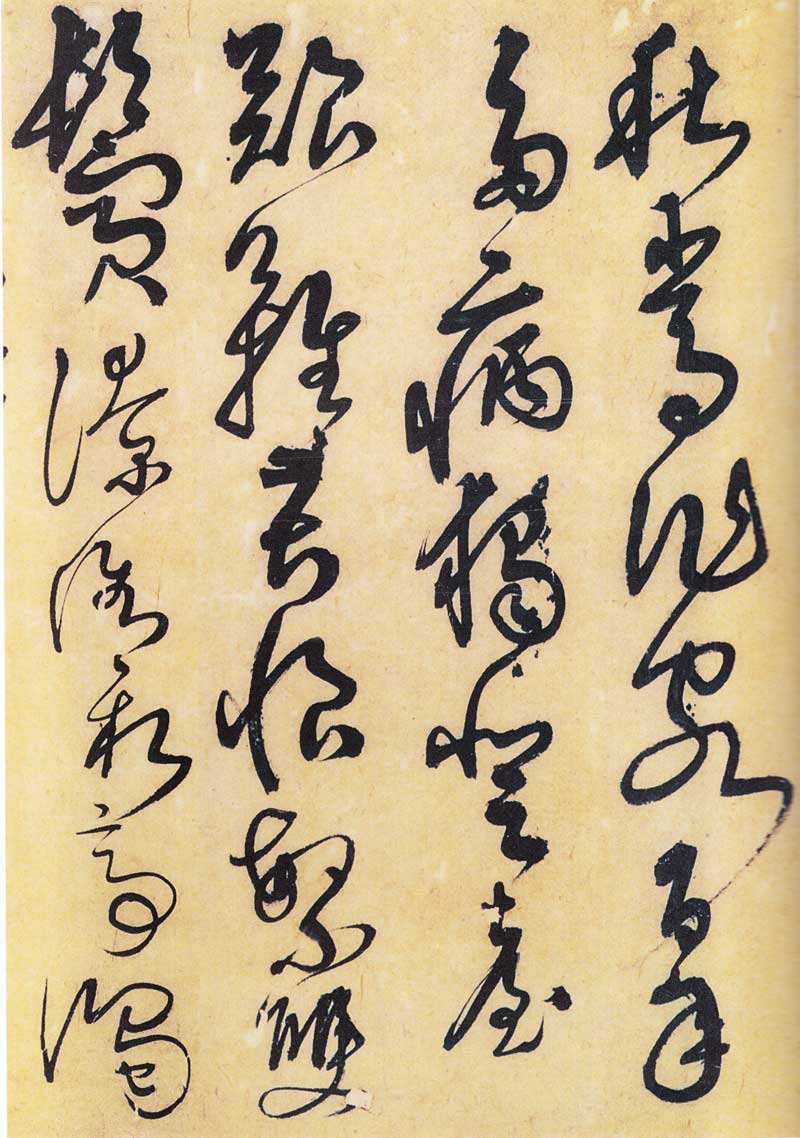 秋常作客百年
多病獨登臺
艱難苦恨繁雙
鬢潦倒新亭濁